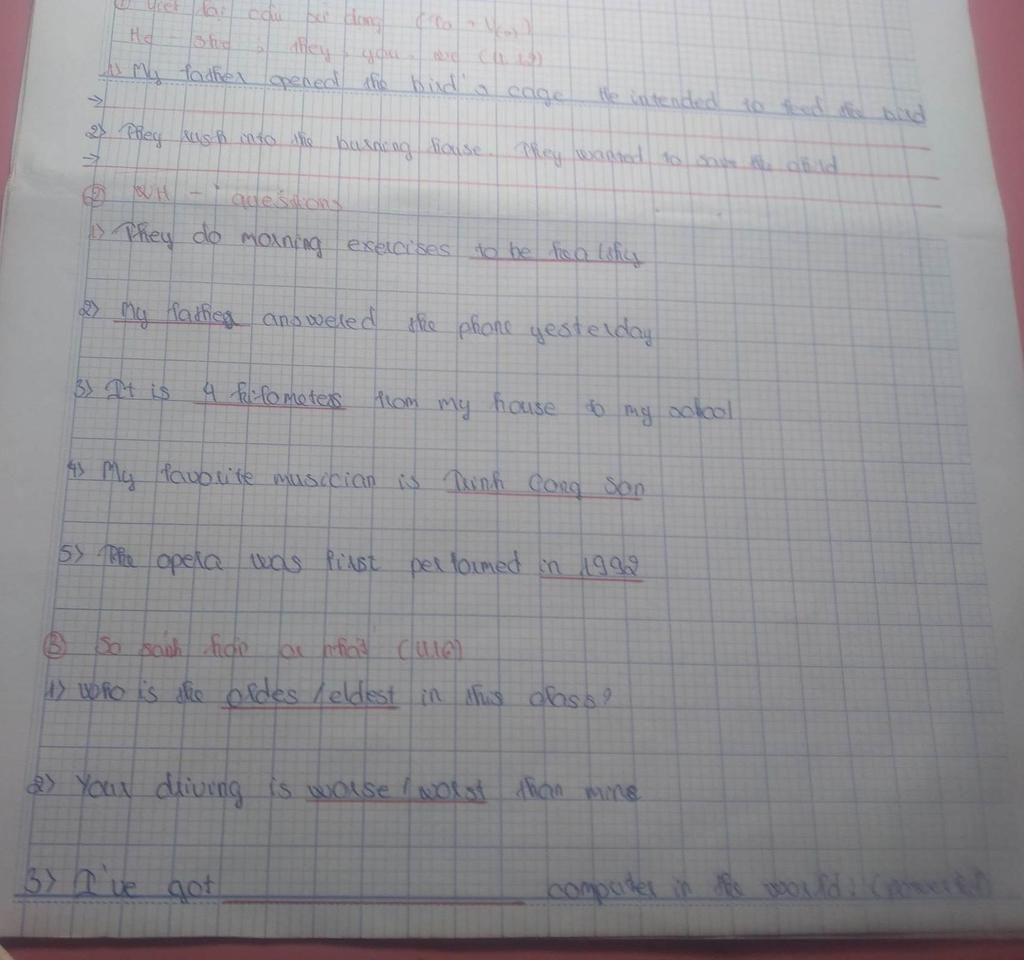 ① Viết lại câu
He - she, they, you, we
1) My father opened the bird's cage He intended to feed the bird
→
2) They rush into the burning house. They wanted to save the child
→
② WH - questions
1) They do morning exercises to be healthy
2) My father answered the phone yesterday
3) It is 4 kilometers from my house to my school
4) My favorite musician is Trinh Cong Son
5) The opera was first performed in 1992
③ So sánh hơn
1) Who is the older / eldest in this class?
2) Your driving is worse / worst than mine
3) I've got computer in the world.